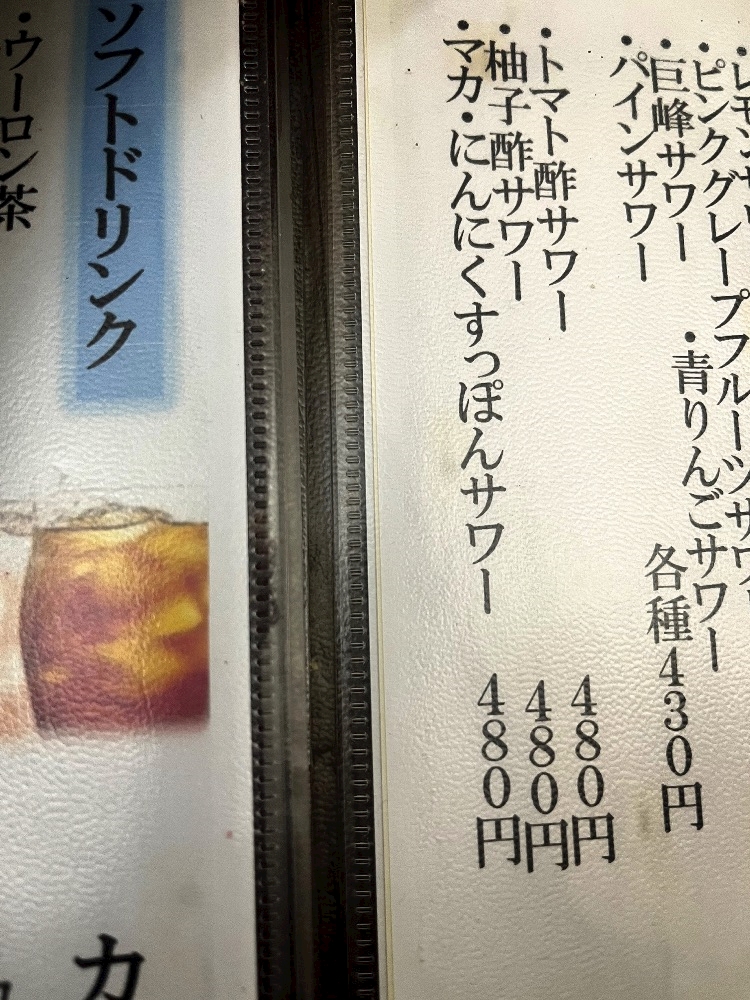 レモンサワー
・ピンクグレープフルーツサワー
・巨峰サワー ・青りんごサワー
・パインサワー 各種430円
・トマト酢サワー 480円
・柚子酢サワー 480円
・マカ・にんにくすっぽんサワー 480円
ソフトドリンク
・ウーロン茶
カ